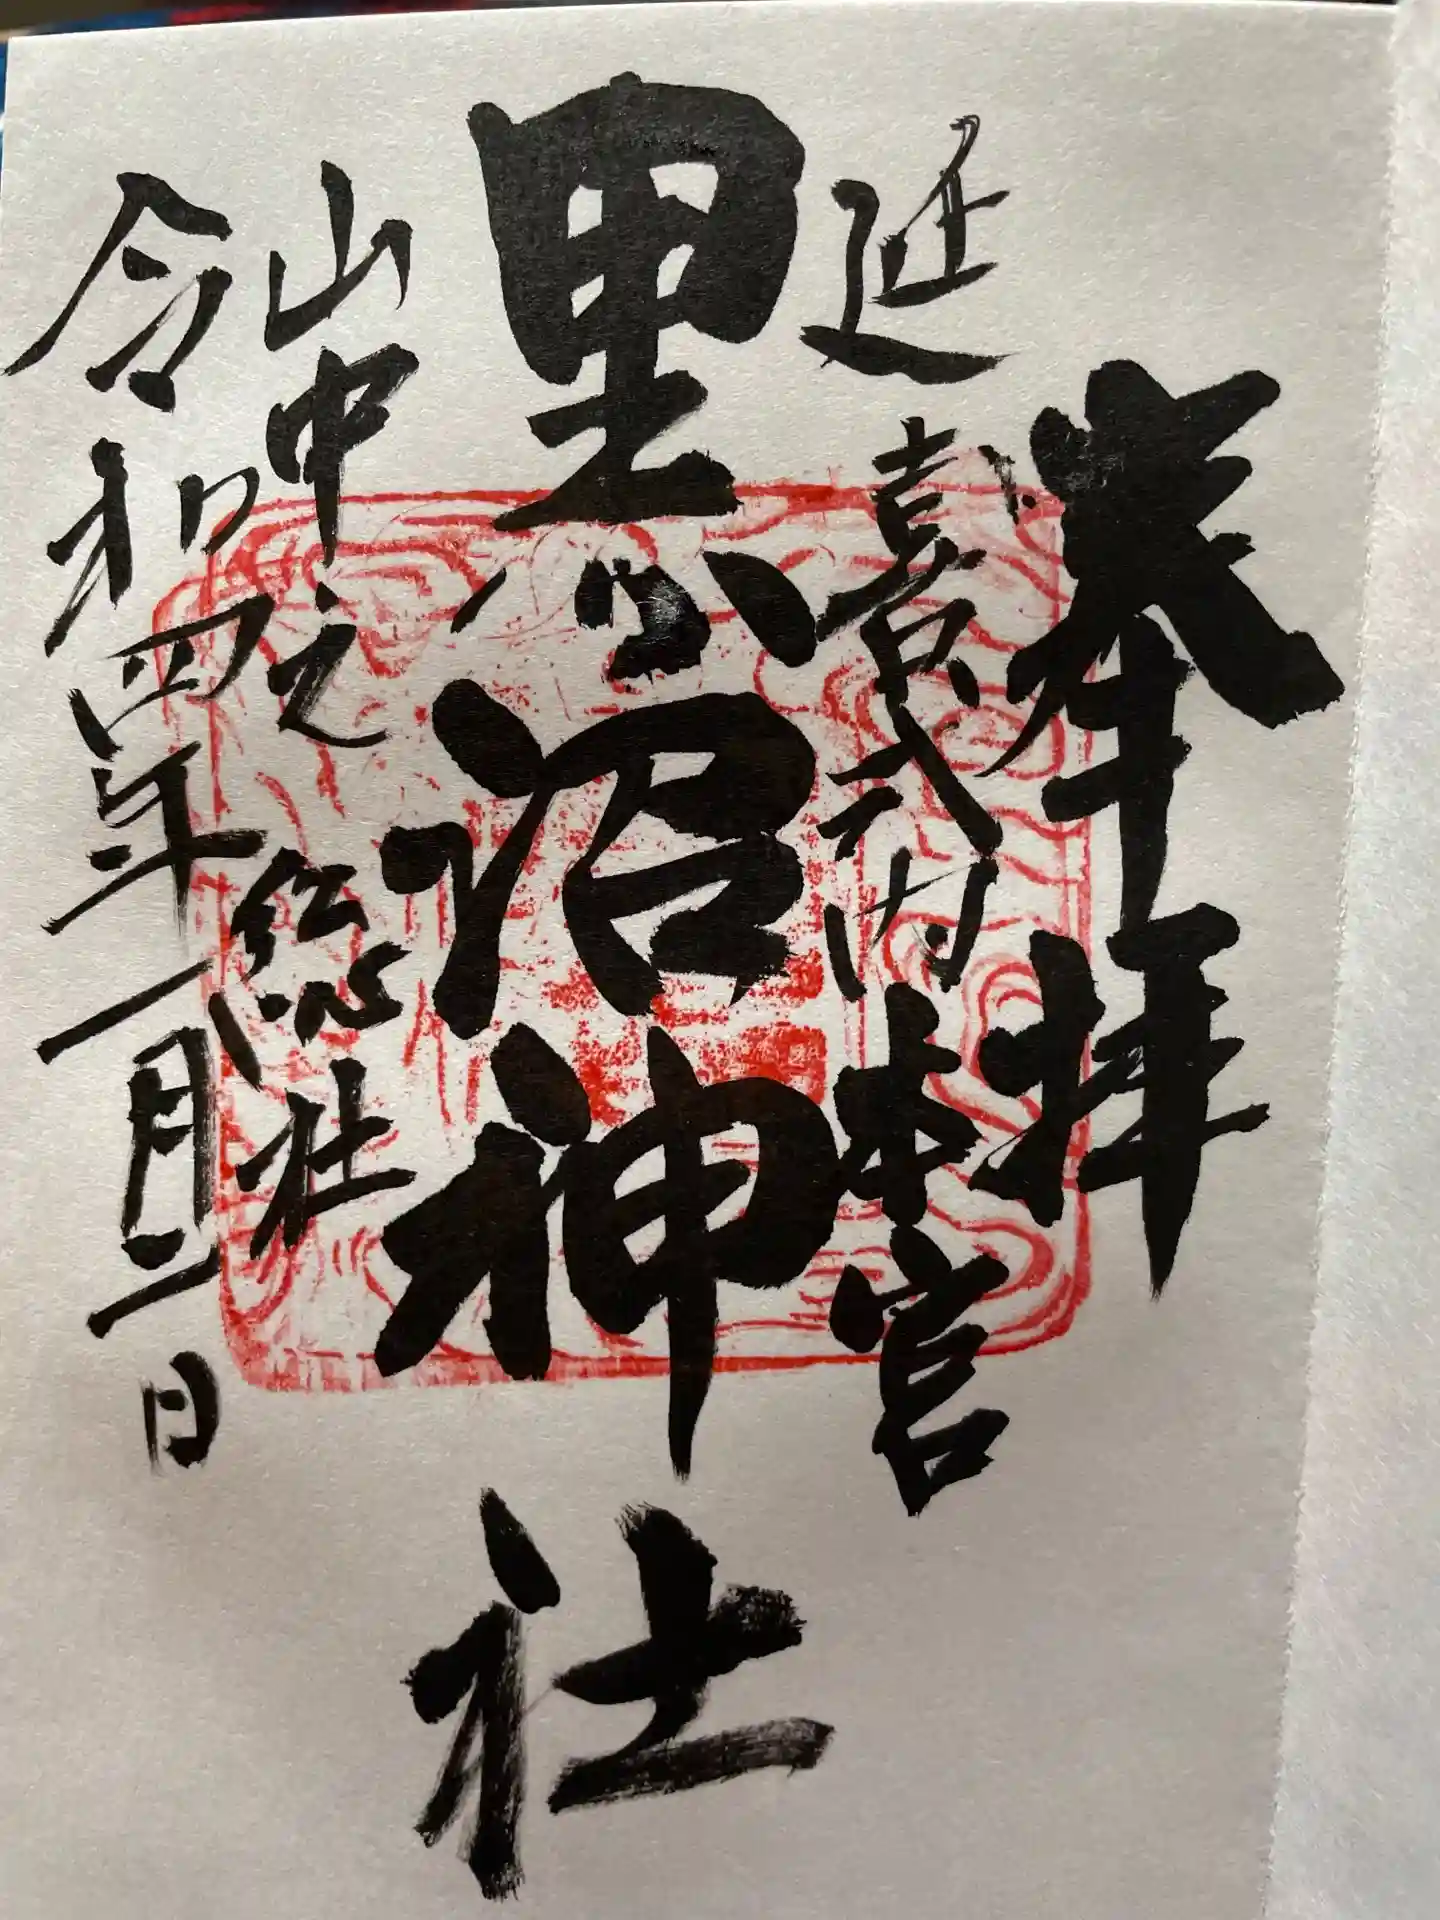 奉拝
延喜式内 本宮
黒沼神社
山中之総社
令和四年一月二日